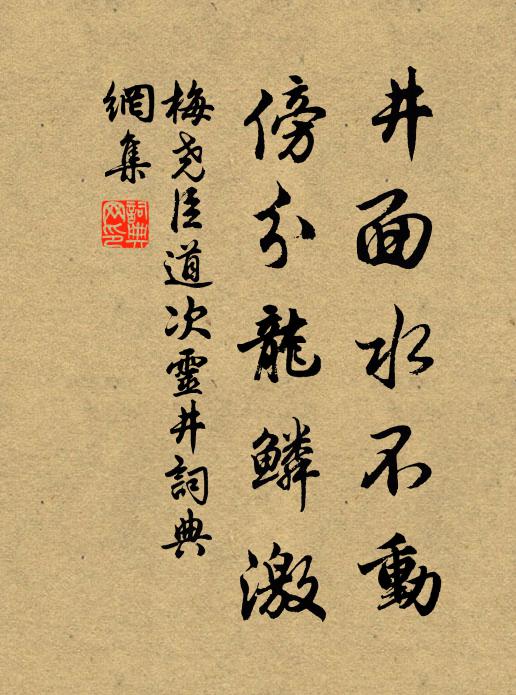 井面水不動
傍分龍鱗激
梅尧臣道次靈井詞典
網集
詞典網印